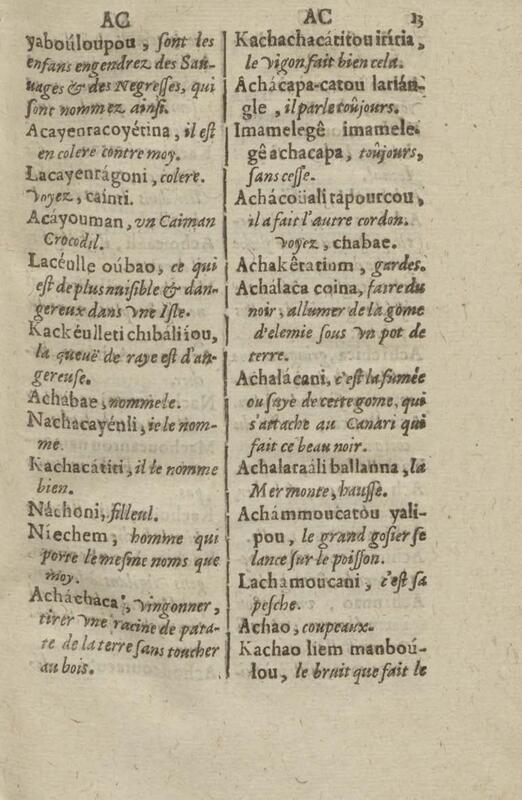 AC
yaboúloupou, sont les
enfans engendrez des Sau-
uages & des Negresses, qui
sont nommez ainsi.
Acayentacoyétina, il est
en colere contre moy.
Lacayentágoni, colere.
voyez, cainti.
Acáyouman, vn Caiman
Crocodil.
Lacéulle oúbao, ce qui
est de plus nuisible & dan-
gereux dans vne Isle.
Kackéulleti chibáliiou,
la queuë de raye est d'an-
gereuse.
Achábae, nommele.
Nachacayénli, ie le nom-
me.
Kachacátiti, il le nomme
bien.
Náchoni, filleul.
Níechem, homme qui
porte le mesme noms que
moy.
Acháchaca, vingonner,
tirer vne racine de pata-
te de la terre sans toucher
au bois.
AC 13
Kachachacátitou iríria,
le vigon fait bien cela.
Achácapa-catou larián-
gle, il parle toûjours.
Imamelegê imamele-
gê achacapa, toûjours,
sans cesse.
Achácoüali tápourcou,
il a fait l'autre cordon.
voyez, chabae.
Achakêtatium, gardes.
Achálaca coina, faire du
noir, allumer de la gôme
d'elemie sous vn pot de
terre.
Achalácani, c'est la fumée
ou saye de cette gome, qui
s'attache au Canári qui
fait ce beau noir.
Achalaraáli ballanna, la
Mer monte, hausse.
Achámmoucatou yali-
pou, le grand gosier se
lance sur le poisson.
Lachamoucani, c'est sa
pesche.
Achao, coupeaux.
Kachao liem manboú-
lou, le bruit que fait le